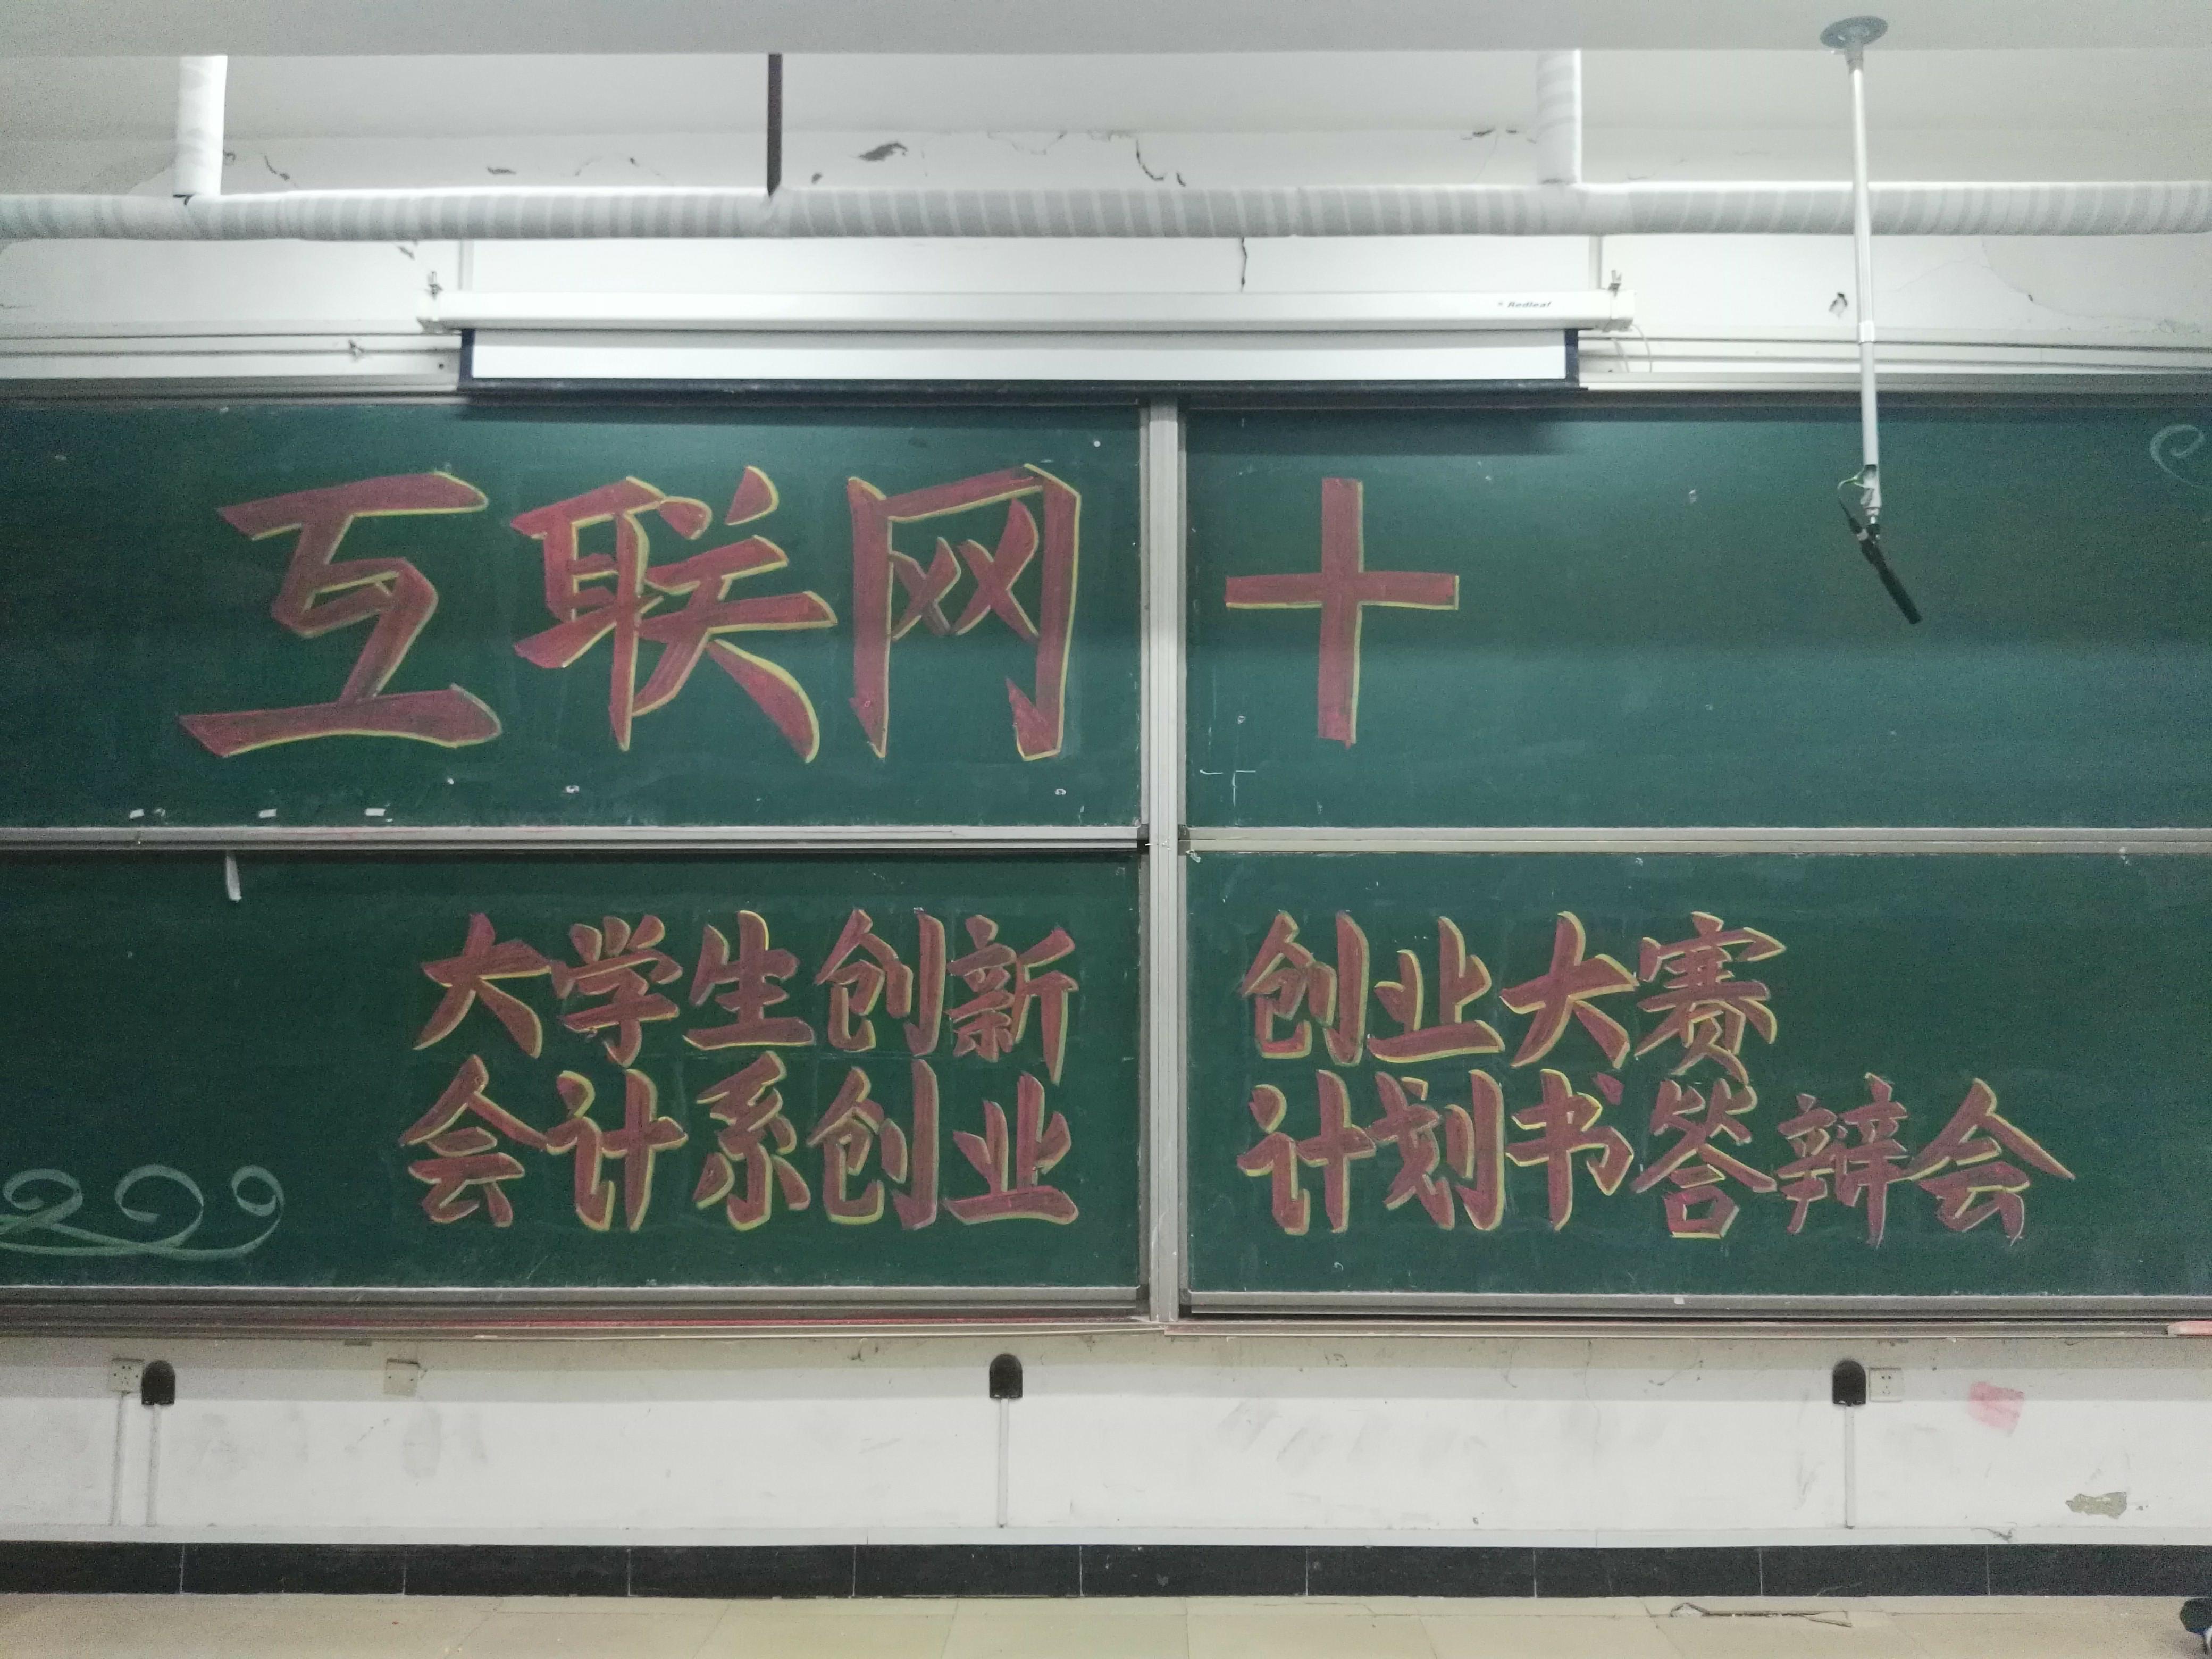 Redleaf
互联网+
大学生创新创业大赛
会计系创业计划书答辩会